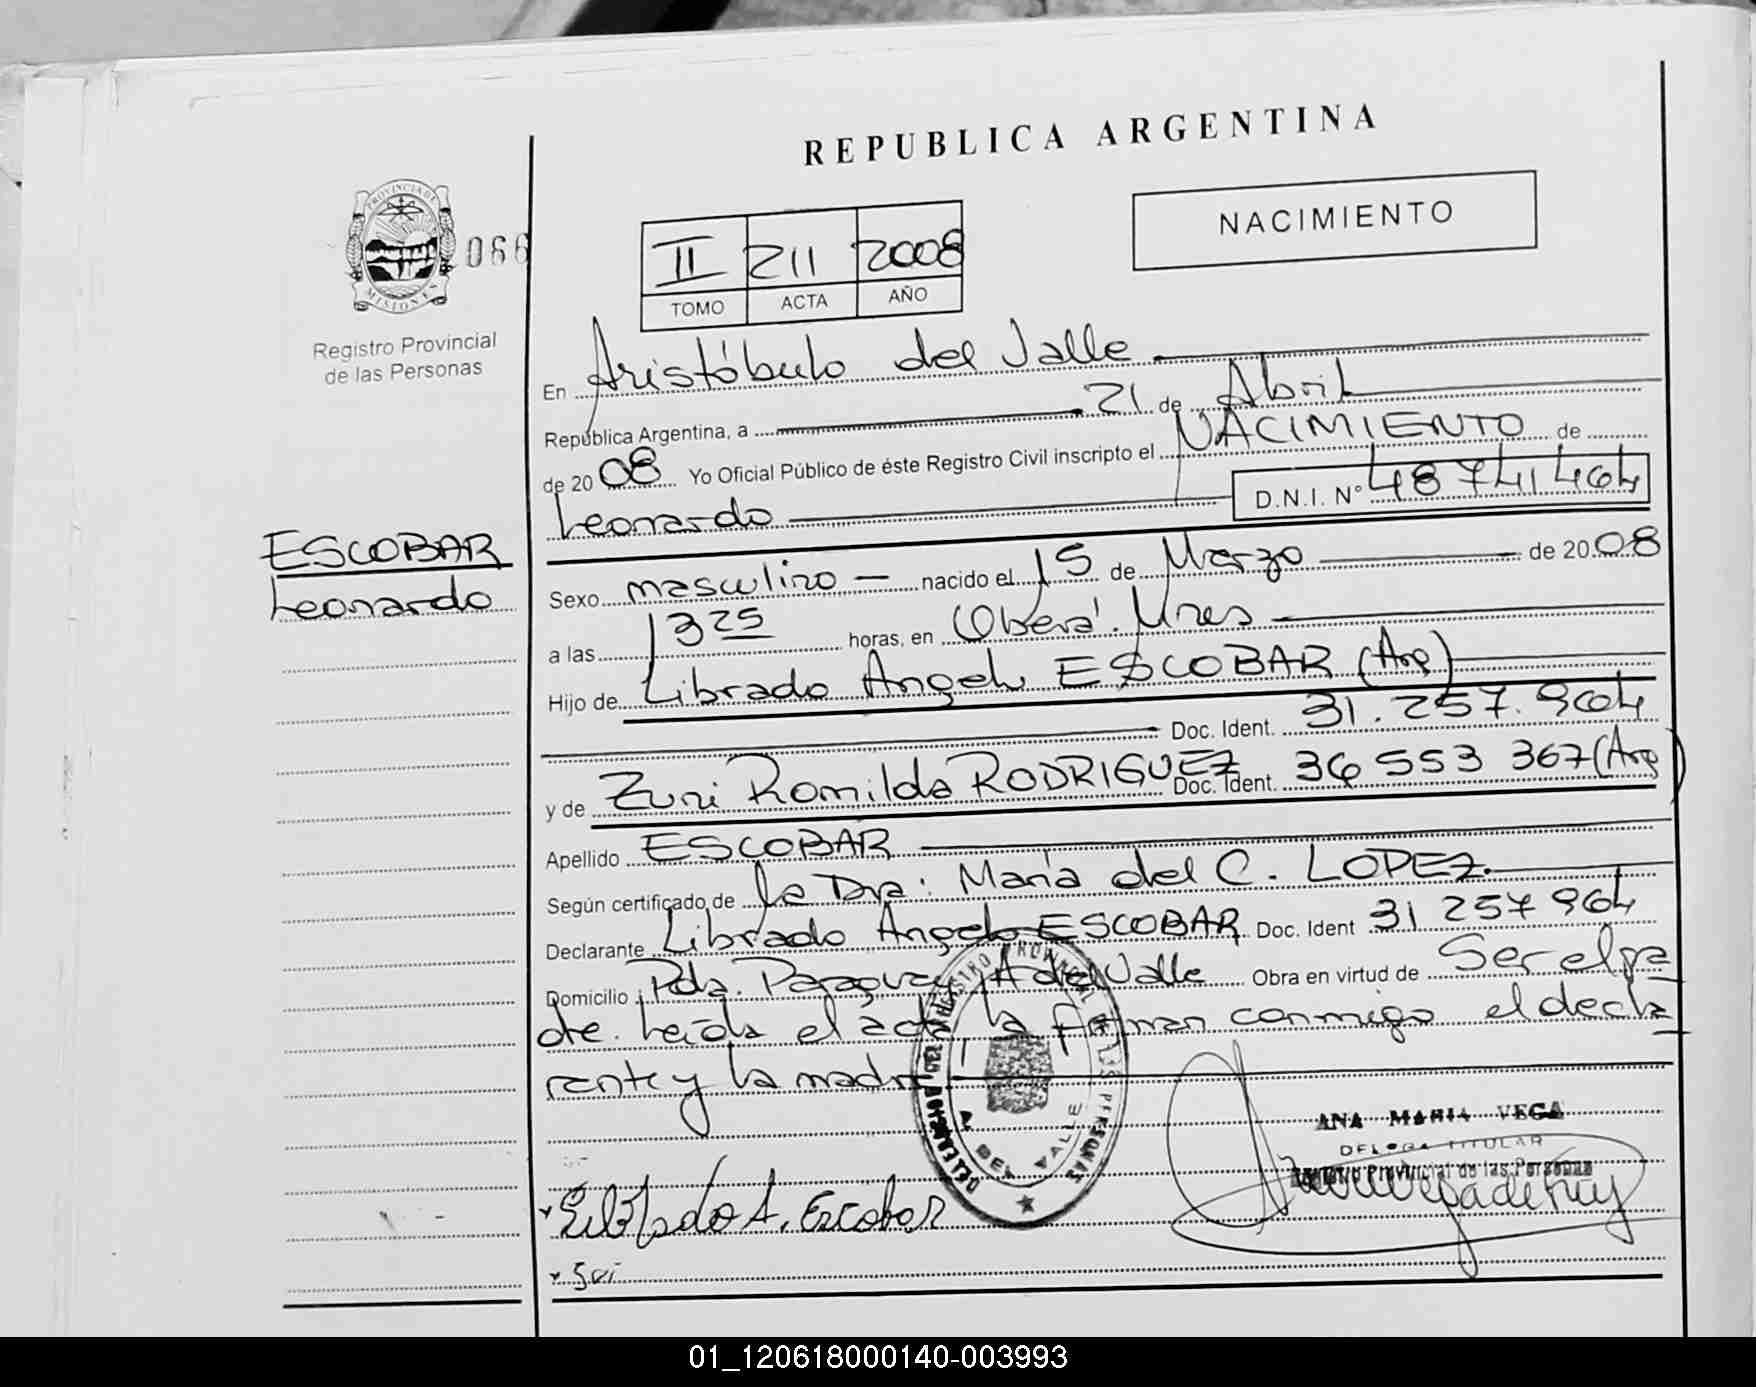 REPUBLICA ARGENTINA
NACIMIENTO
PROVINCIA DE
MISIONES
066
Registro Provincial
de las Personas
II 211 2008
TOMO ACTA AÑO
En Aristóbulo del Valle
República Argentina, a 21 de Abril
de 20 08 Yo Oficial Público de éste Registro Civil inscripto el NACIMIENTO de
Leonardo D.N.I. Nº 48741464
ESCOBAR
Leonardo
Sexo masculino nacido el 15 de Marzo de 20 08
a las 13 25 horas, en Oberá. Mnes
Hijo de Librado Angel ESCOBAR (Arg)
Doc. Ident. 31.257.964
y de Zuni Romilda RODRIGUEZ Doc. Ident. 36 553 367 (Arg)
Apellido ESCOBAR
Según certificado de la Dra: María del C. LOPEZ.
Declarante Librado Angel ESCOBAR Doc. Ident 31 257 964
Domicilio Pda. Paraguay A del Valle Obra en virtud de Ser el pa
dre. Leída el acta la firman conmigo el decla
rante y la madre
REGISTRO PROVINCIAL DE LAS PERSONAS
A. DEL VALLE
ANA MARIA VEGA
DELEGA TITULAR
Registro Provincial de las Personas
Librado A. Escobar
01_120618000140-003993